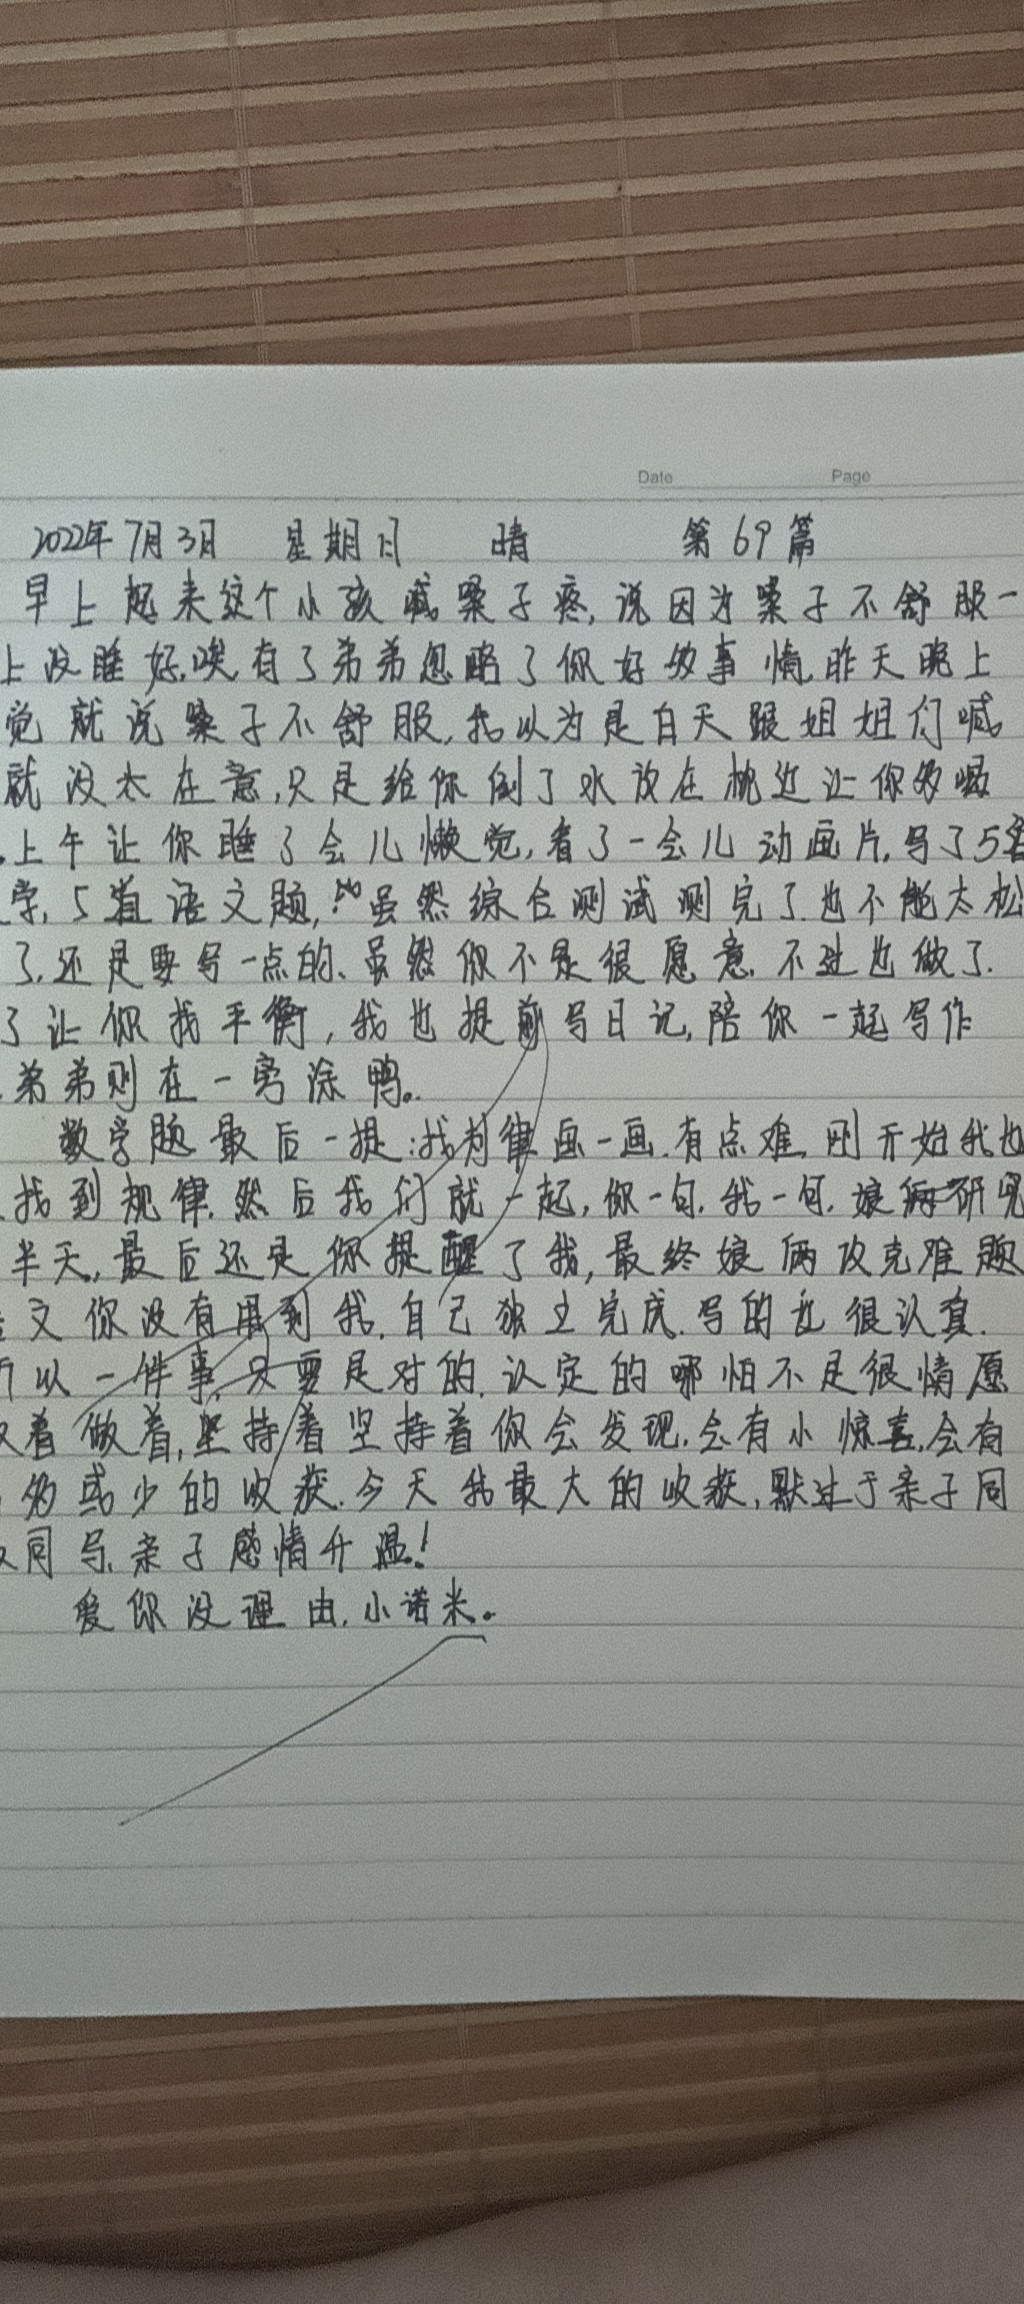 Date Page
2022年7月3日 星期日 晴 第69篇
早上起来这个小孩喊嗓子疼,说因为嗓子不舒服一
上没睡好,唉,有了弟弟忽略了你好多事情,昨天晚上
觉就说嗓子不舒服,我以为是白天跟姐姐们喊
就没太在意,只是给你倒了水放在枕边让你多喝
.上午让你睡了会儿懒觉,看了一会儿动画片,写了5
学,5道语文题,虽然综合测试测完了也不能太松
了,还是要写一点的、虽然你不是很愿意,不过也做了.
了让你找平衡,我也提前写日记,陪你一起写作
弟弟则在一旁涂鸭。
数学题最后一提:找规律画一画.有点难,刚开始我也
找到规律,然后我们就一起,你一句,我一句,娘俩研究
半天,最后还是你提醒了我,最终娘俩攻克难题
文你没有用到我,自己独立完成.写的也很认真.
所以一件事,只要是对的,认定的哪怕不是很情愿
着做着,坚持着坚持着你会发现,会有小惊喜,会有
多或少的收获.今天我最大的收获,默过于亲子同
同写,亲子感情升温!
爱你没理由,小诺米。